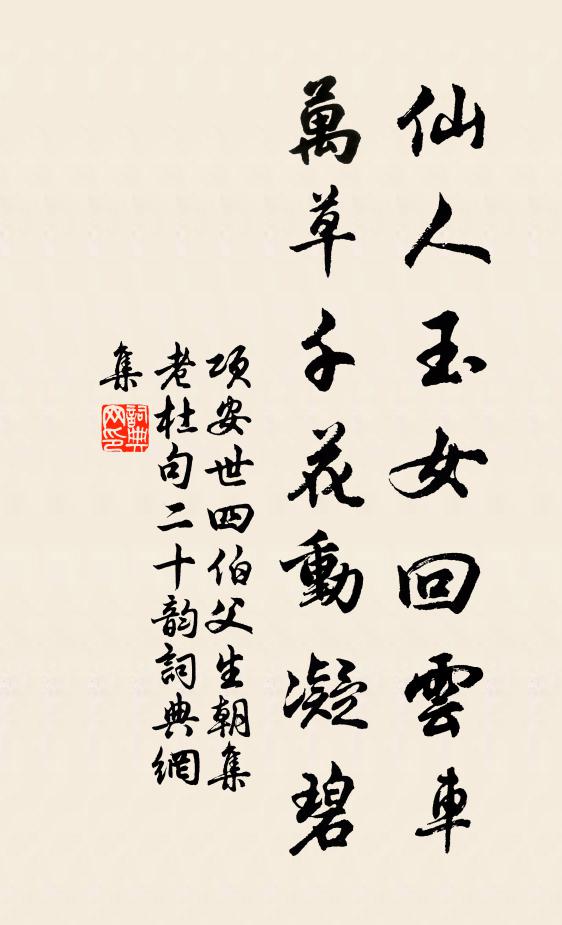 仙人玉女回雲車
萬草千花動凝碧
項安世四伯父生朝集
老杜句二十韵詞典網
集
詞典
网印